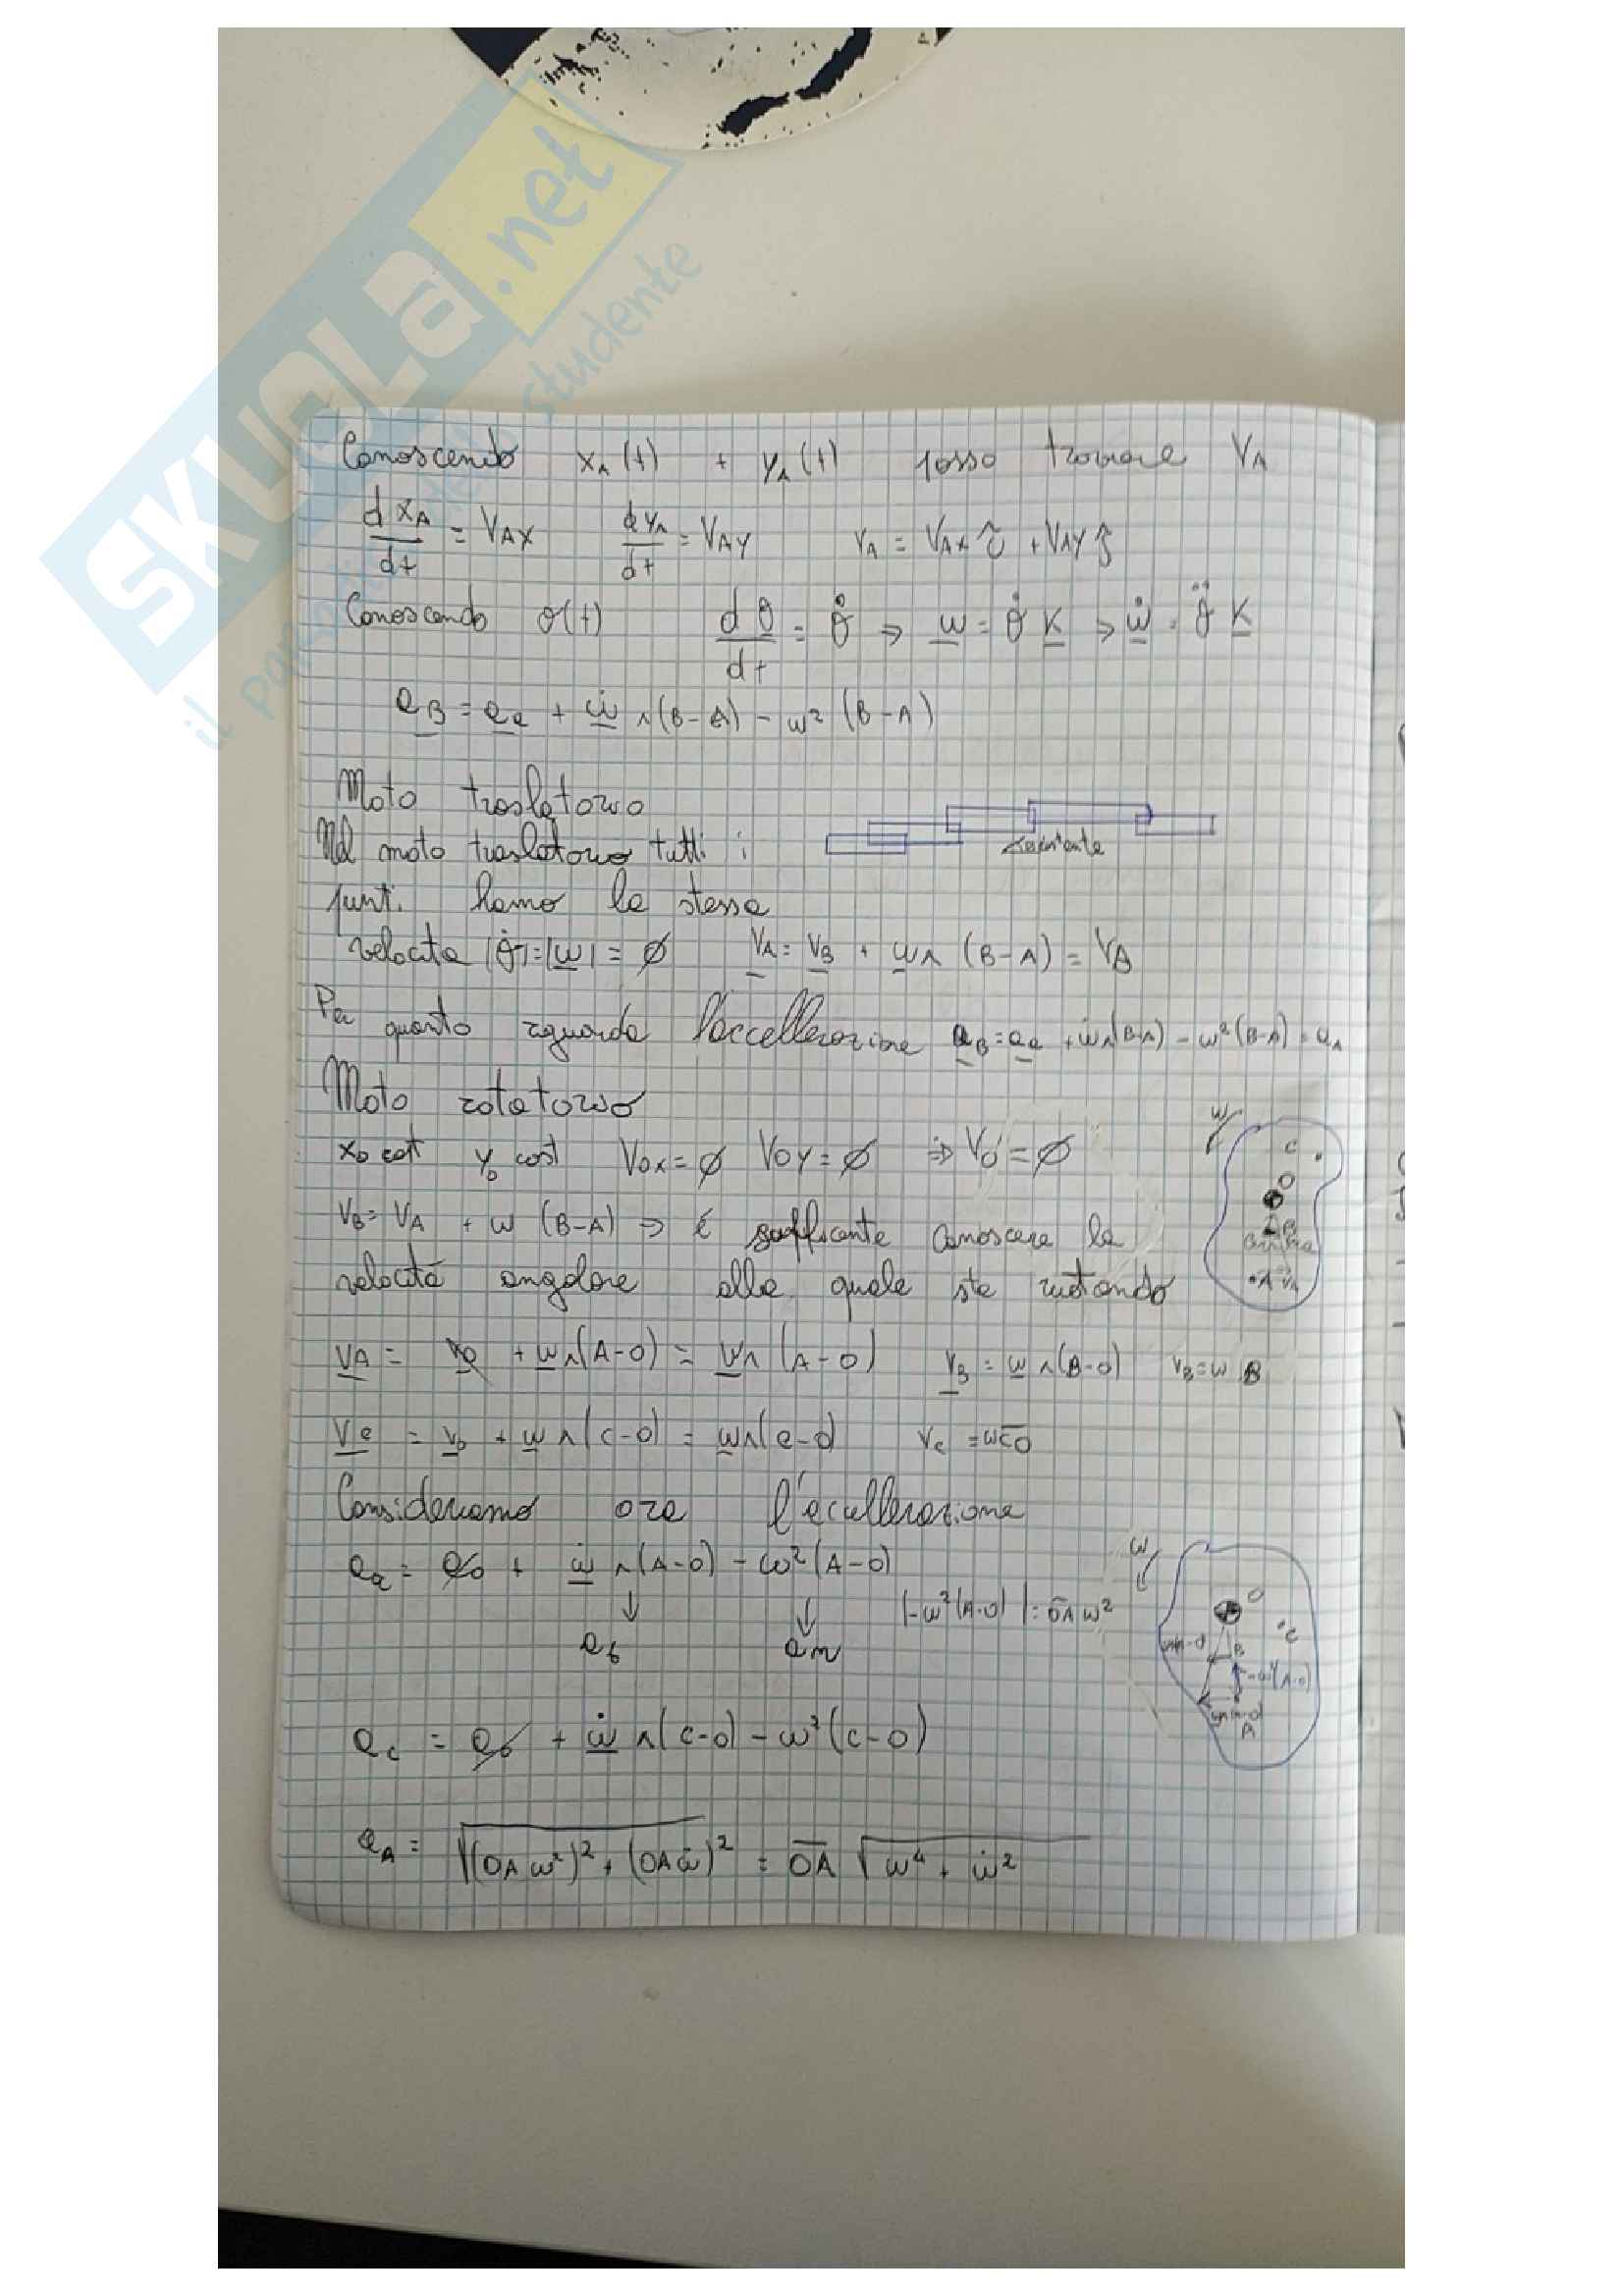 SKUOLA.net
il paradiso dello studente
Conoscendo xA(t) + yA(t) posso trovare VA
dxA/dt = VAX dyA/dt = VAY VA = VAX î + VAY ĵ
Conoscendo θ(t) dθ/dt = θ̇ ⇒ ω = θ̇ K ⇒ ω̇ = θ̈ K
aB = aa + ω̇ ∧ (B-A) - ω² (B-A)
Moto traslatorio
Nel moto traslatorio tutti i
punti hanno la stessa
velocita |θ̇|=|ω| = ∅ VA = VB + ω ∧ (B-A) = VB
Per quanto riguarda l'accellerazione aB = aa + ω̇∧(B-A) - ω²(B-A) = aA
Moto rotatorio
xo cost yo cost VOX = ∅ VOY = ∅ ⇒ VO = ∅
VB = VA + ω (B-A) ⇒ é sufficente conoscere la
velocitá angolare alla quale sta ruotando
ω
C
O
B
A VA
VA = VO + ω∧(A-O) = ω∧(A-O) VB = ω∧(B-O) VB = ω B
Vc = Vo + ω∧(C-O) = ω∧(C-O) Vc = ωCO
Consideriamo ora l'accellerazione
aa = ao + ω̇ ∧(A-O) - ω²(A-O)
↓ ↓ |-ω²(A-O)| = OA ω²
at an
ω
O
C
B
-ω²(A-O)
A
ac = ao + ω̇ ∧(C-O) - ω²(C-O)
aA = √(OA ω²)² + (OA ω̇)² = OA √ω⁴ + ω̇²